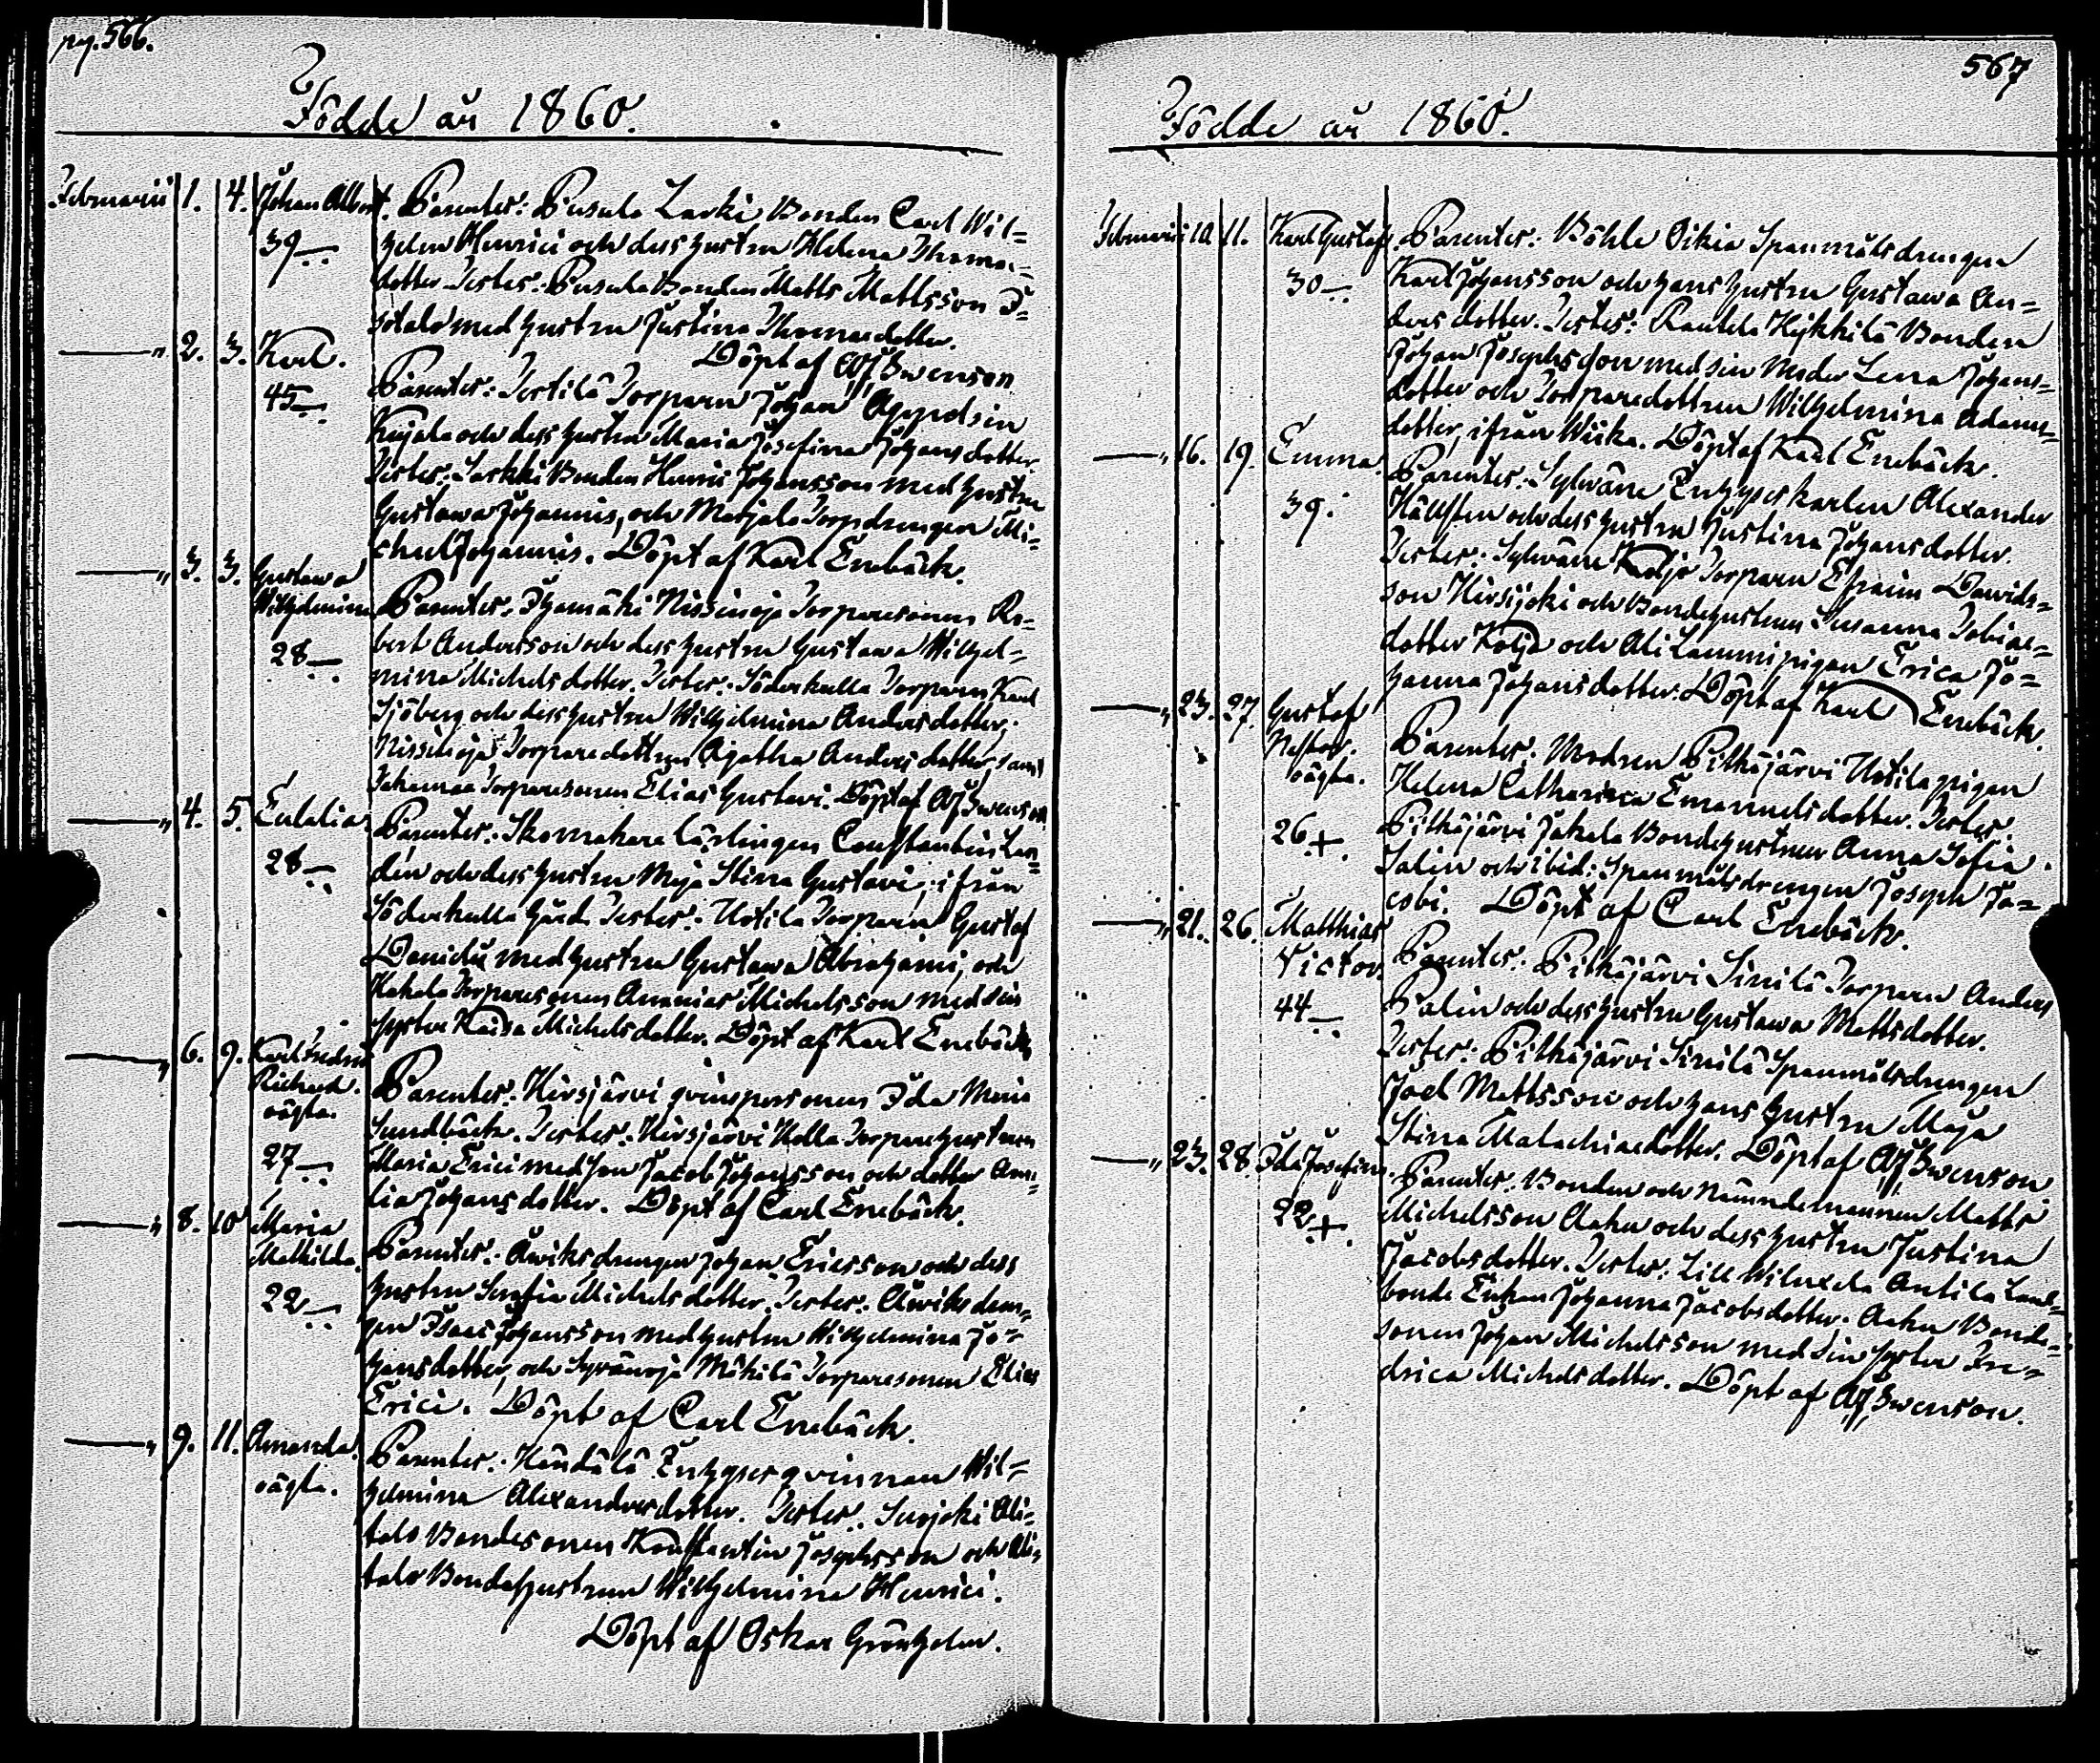 pag. 566.
Födde år 1860.
Februarii 1. 4. Johan Albert. Parentes: Pusula Larki Bonden Carl Wil=
39 helm Henrici och dess hustru Helena Thomæ=
dotter Testes: Pusula Bonden Matts Mattsson I=
sotalo med hustru Justina Thomædotter.
Döpt af AJ Swenson
" 2. 3. Karl. Parentes: Tertilä Torparen Johan
45 Kujala och dess hustru Maria Josefina Johansdotter
Testes: Larkki Bonden Henric Johansson med hustru
Gustawa Johannis, och Marjala Torpdrengen Mi=
chel Johannis. Döpt af Karl Enebäck.
" 3. 3. Gustawa
Wilhelmina Parentes. Hyamäki Nissinoja Torparesonen Ro=
28 bert Andersson och dess hustru Gustawa Wilhel=
mina Michelsdotter. Testes: Söderkulla Torparen Karl
Sjöberg och dess hustru Wilhelmina Andersdotter;
Nissinoja Torparedottren Agatha Andersdotter, samt
Torparesonen Elias Gustavi. Döpt af AJ Swenson
" 4. 5. Eulalia. Parentes: Skomakare lärlingen Constantin Lan=
28 dén och dess hustru Maja Stina Gustavi, ifrån
Söderkulla Gård. Testes: Uotila Torparen Gustaf
Davidis med hustru Gustawa Abrahami, och
Kakola Torparesonen Ananias Michelsson med sin
syster Kaisa Michelsdotter. Döpt af Karl Enebäck
" 6. 9. Karl Fredric
Richard.
oägta. Parentes: Hirsjärvi qvinspersonen Ida Maria
Sundbäck. Testes: Hirsjärvi Torparehustrun
27 Maria Erici med son Jacob Johansson och dotter Ama=
lia Johansdotter. Döpt af Carl Enebäck.
" 8. 10 Maria
Mathilda. Parentes: Åwiks drengen Johan Ericsson och dess
22 hustru Serafia Michelsdotter. Testes: Åwiks dren=
gen Isaac Johansson med hustru Wilhelmina Jo=
hansdotter, och Syvänoja Mäkilä Torparesonen Elias
Erici. Döpt af Carl Enebäck.
" 9. 11. Amanda.
oägta. Parentes: Händälä Inhyses qvinnan Wil=
helmina Alexandersdotter. Testes: Suojoki Ali=
talo Bondesonen Konstantin Josephsson och Ali=
talo Bondehustrun Wilhelmina Henrici.
Döpt af Oskar Grönholm.
567
Födde år 1860.
Februarii 10. 11. Karl Gustaf. Parentes: Böhle Oikia Spanmålsdrengen
30 Karl Johansson och hans hustru Gustawa An=
dersdotter. Testes: Rautela Heikkilä Bonden
Johan Josephsson med sin Moder Lena Johans=
dotter och Torparedottren Wilhelmina Adams=
dotter, ifrån Wiika. Döpt af Karl Enebäck.
" 16. 19. Emma. Parentes: Sylwäne Inhyses karlen Alexander
39. Hällsten och dess hustru Justina Johansdotter.
Testes: Sylwäne Koljo Torparen Efraim Davids=
son Hirsijoki och Bondehustrun Susanna Tobiae=
dotter Kolja och Ali Lammi pigan Erica Jo=
hanna Johansdotter. Döpt af Karl Enebäck.
" 23. 27. Gustaf
Nestor.
oägta. Parentes: Modren Pitkäjärvi Uotila pigan
Helena Catharina Emanuelsdotter. Testes:
26 + Pitkäjärvi Jakala Bondehustrun Anna Sofia
Salin och ibid: Spanmålsdrengen Joseph Ja=
cobi. Döpt af Carl Enebäck.
" 21. 26. Matthias
Victor. Parentes: Pitkäjärvi Sinilä Torparen Anders
44 Palin och dess hustru Gustawa Mattsdotter.
Testes: Pitkäjärvi Sinilä Spanmålsdrengen
Joel Mattsson och hans hustru Maja
Stina Malachiædotter. Döpt af AJ Swenson.
" 23. 28. Ida Josefina. Parentes: Bonden och Nämndemannen Matts
22 + Michelsson Aahu och dess hustru Justina
Jacobsdotter. Testes: Lill Wiluxela Antila Land=
bonde Enkan Johanna Jacobsdotter. Aahu Bonde=
sonen Johan Michelsson med sin syster Fre=
drica Michelsdotter. Döpt af AJ Swenson.